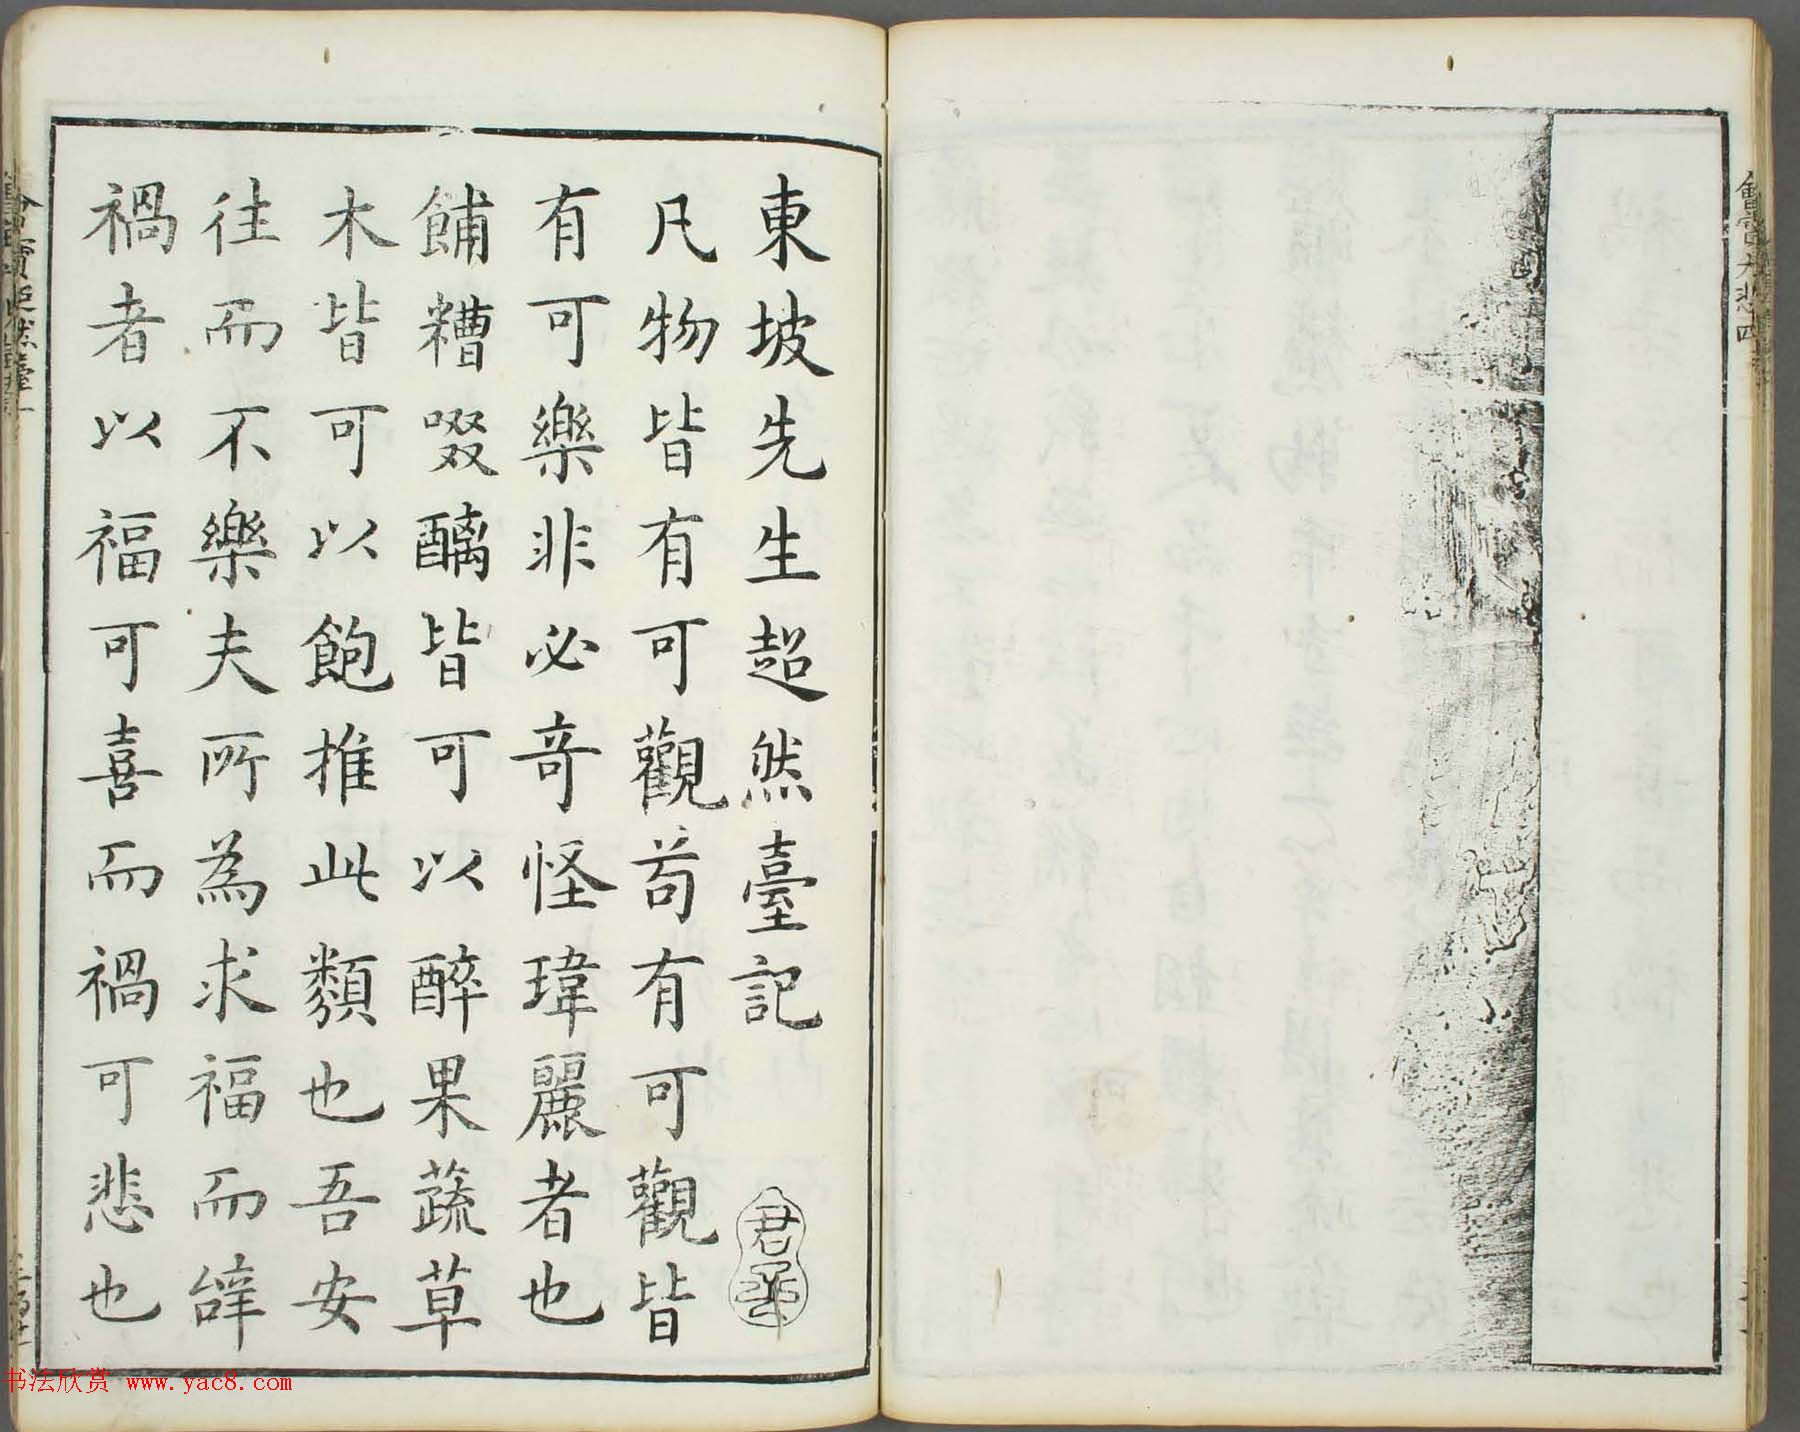 東坡先生超然臺記
凡物皆有可觀苟有可觀皆
有可樂非必奇怪瑋麗者也
餔糟啜醨皆可以醉果蔬草
木皆可以飽推此類也吾安
往而不樂夫所為求福而辭
禍者以福可喜而禍可悲也
书法欣赏 www.yac8.com